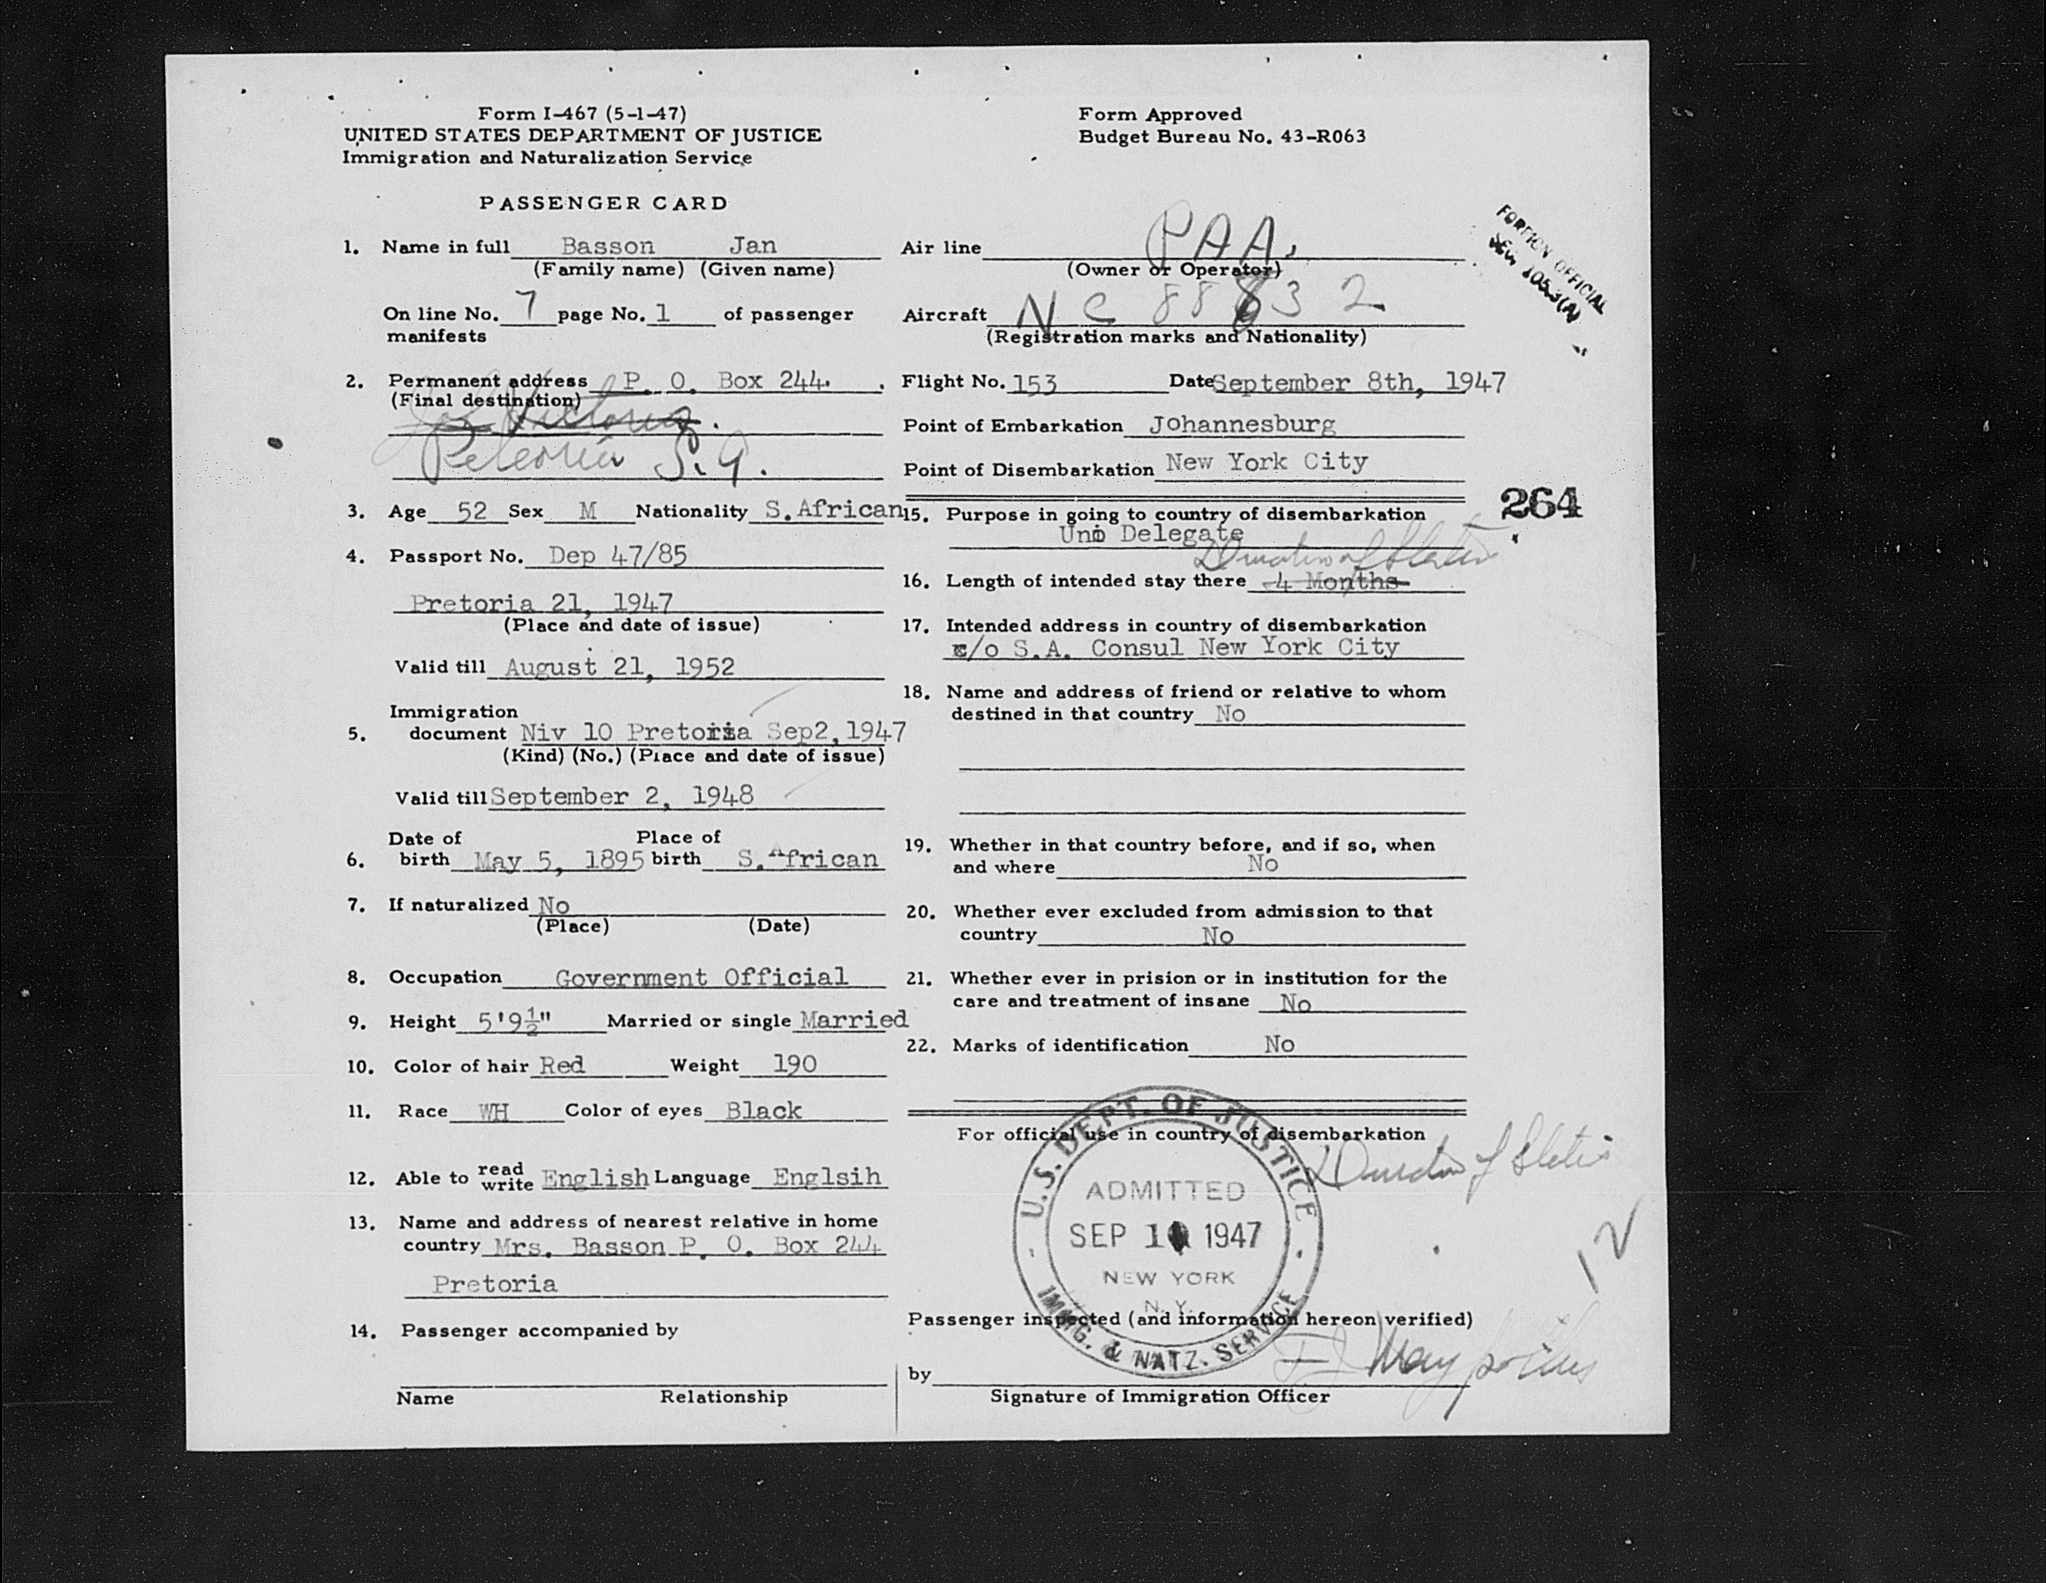 Form I-467 (5-1-47)
UNITED STATES DEPARTMENT OF JUSTICE
Immigration and Naturalization Service
Form Approved
Budget Bureau No. 43-R063
PASSENGER CARD
1. Name in full Basson Jan
(Family name) (Given name)
On line No. 7 page No. 1 of passenger
manifests
2. Permanent address P. O. Box 244.
(Final destination)
Pretoria S.A.
3. Age 52 Sex M Nationality S.African
4. Passport No. Dep 47/85
Pretoria 21, 1947
(Place and date of issue)
Valid till August 21, 1952
Immigration
5. document Niv 10 Pretoria Sep2,1947
(Kind) (No.) (Place and date of issue)
Valid till September 2, 1948
Date of Place of
6. birth May 5, 1895 birth S.African
7. If naturalized No
(Place) (Date)
8. Occupation Government Official
9. Height 5'9½" Married or single Married
10. Color of hair Red Weight 190
11. Race WH Color of eyes Black
12. Able to read write English Language Englsih
13. Name and address of nearest relative in home
country Mrs. Basson P. O. Box 244
Pretoria
14. Passenger accompanied by
Name Relationship
Air line PAA.
(Owner or Operator)
Aircraft NC 88832
(Registration marks and Nationality)
Flight No. 153 Date September 8th, 1947
Point of Embarkation Johannesburg
Point of Disembarkation New York City
FOREIGN OFFICIAL
SEC.
264
15. Purpose in going to country of disembarkation
Uno Delegate
Duration of Status
16. Length of intended stay there 4 Months
17. Intended address in country of disembarkation
c/o S.A. Consul New York City
18. Name and address of friend or relative to whom
destined in that country No
19. Whether in that country before, and if so, when
and where No
20. Whether ever excluded from admission to that
country No
21. Whether ever in prision or in institution for the
care and treatment of insane No
22. Marks of identification No
For official use in country of disembarkation
Duration of Status
U.S. DEPT. OF JUSTICE
ADMITTED
SEP 10 1947
NEW YORK
N.Y.
IMMIG. & NATZ. SERVICE
12
Passenger inspected (and information hereon verified)
by
Signature of Immigration Officer